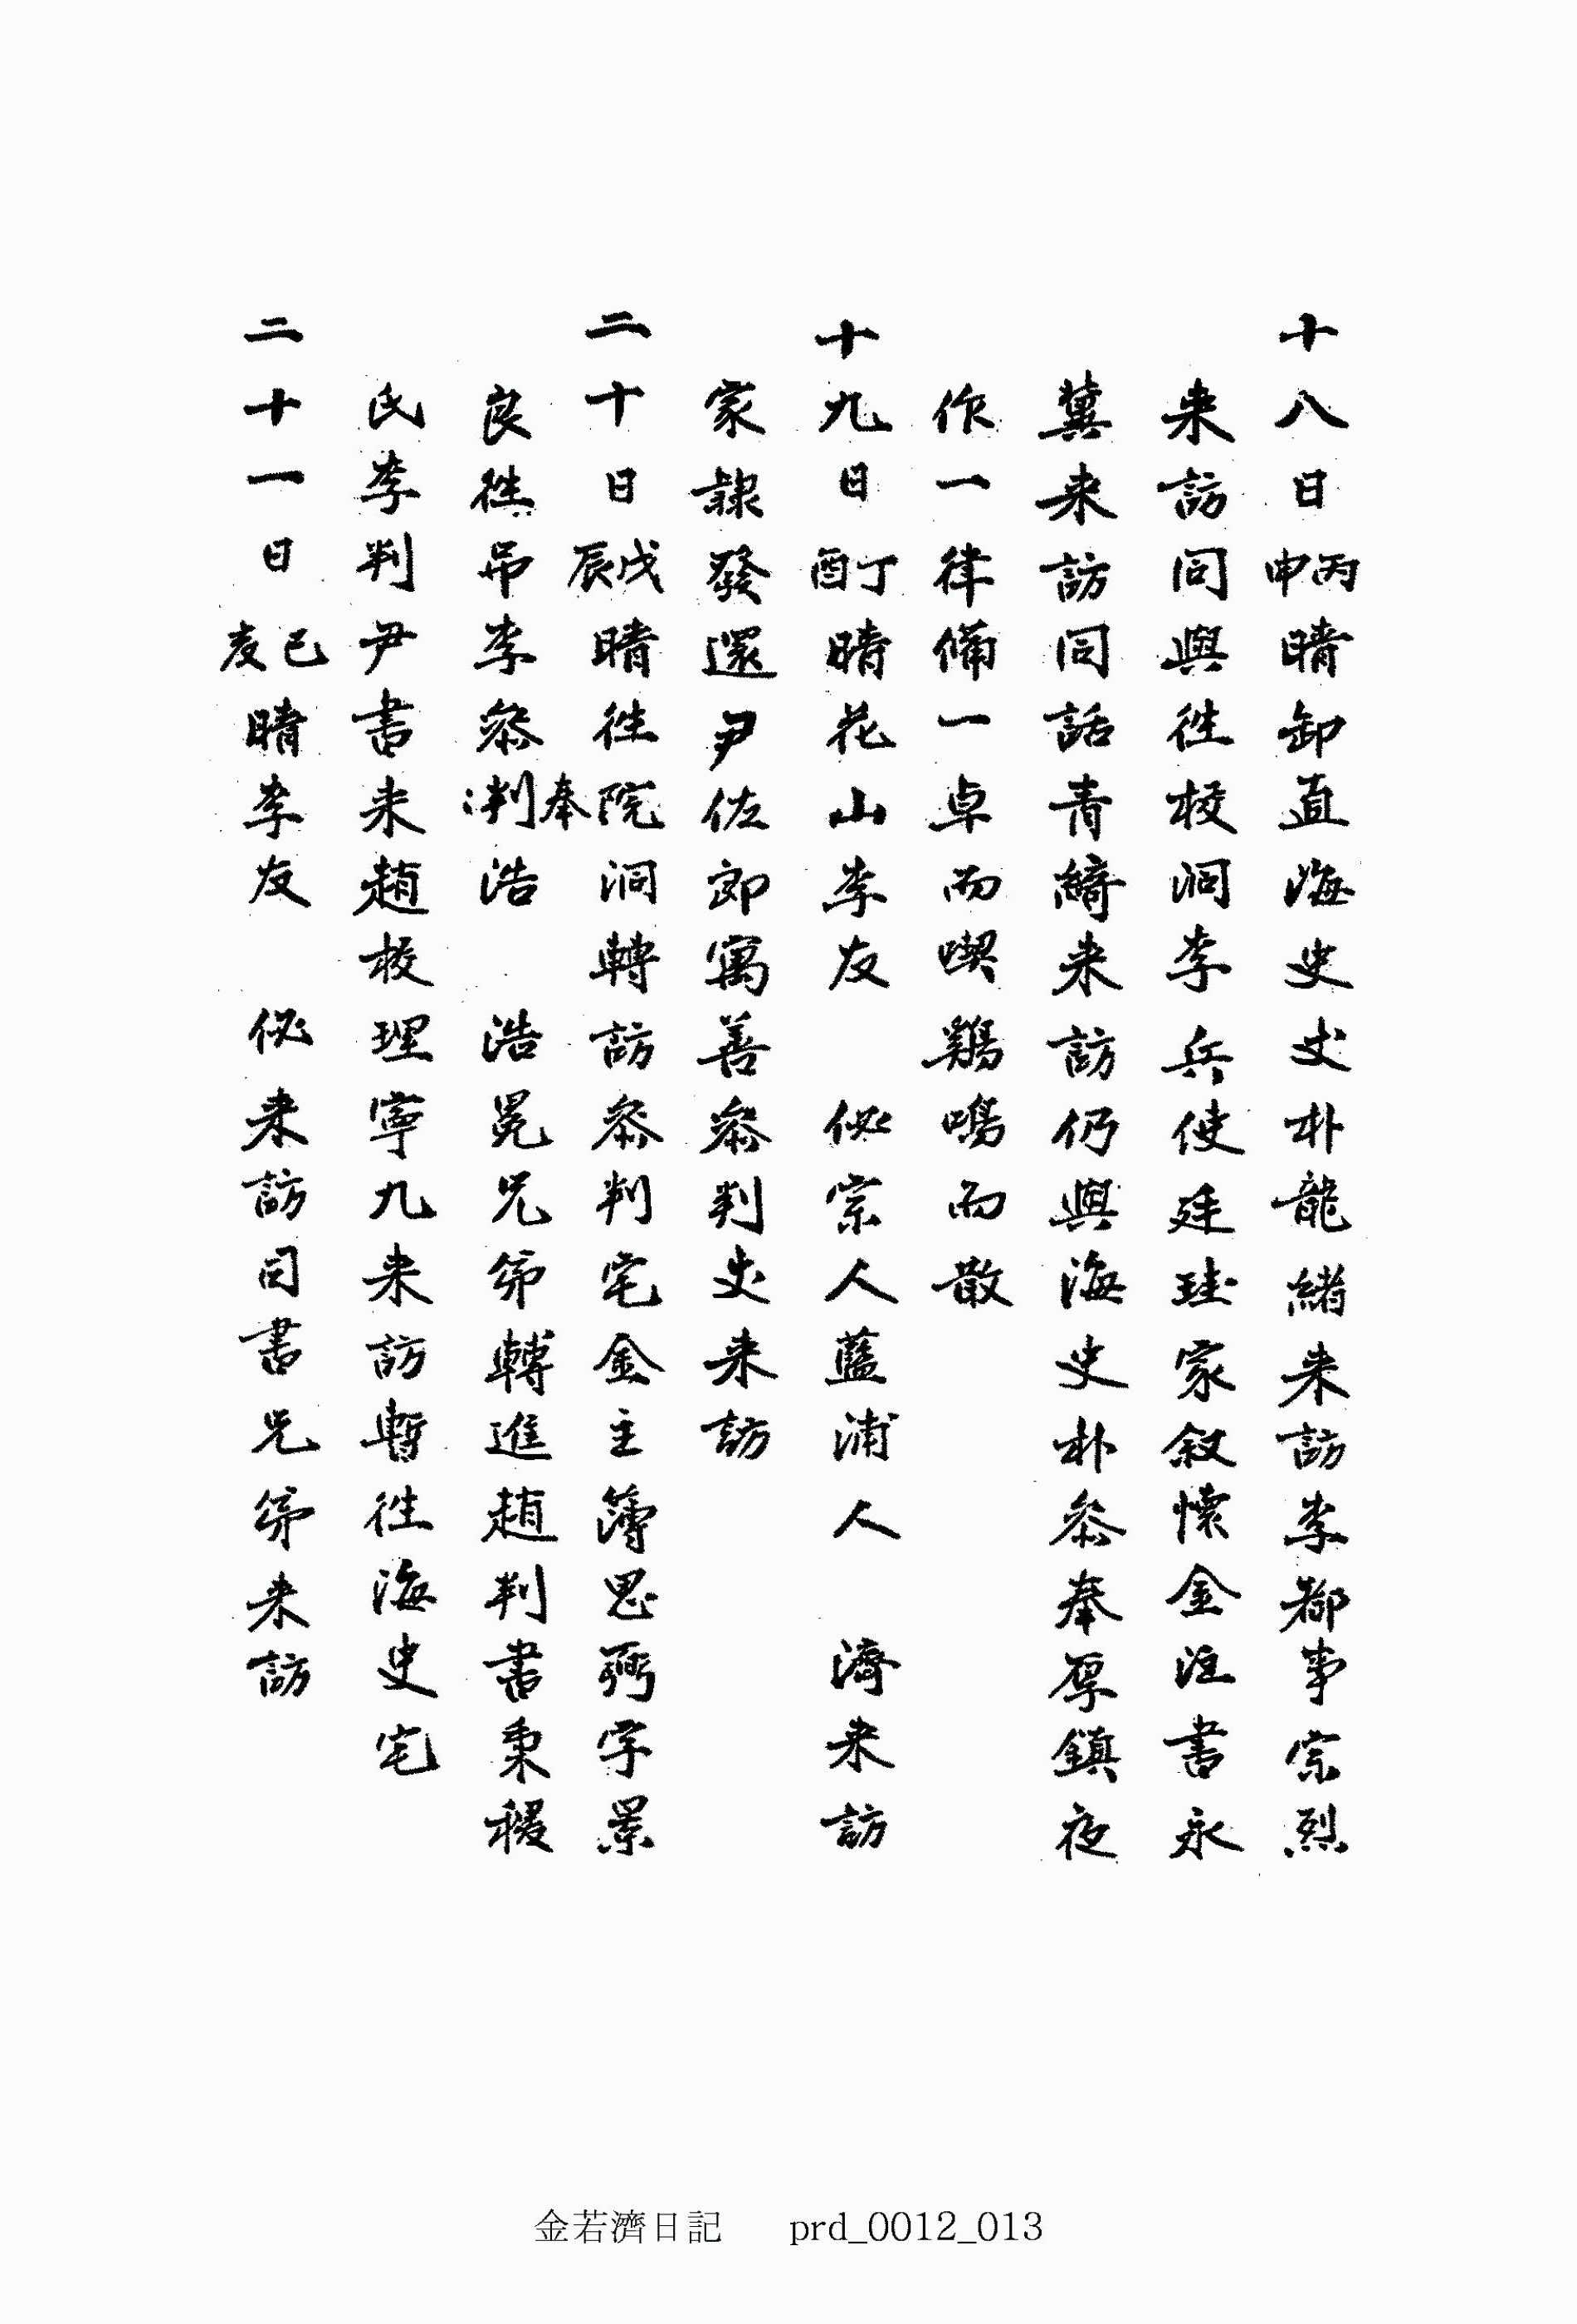 十八日丙申晴卸直海史丈朴龍緖来訪李都事宗烈
来訪同與徃校洞李兵使廷珪家叙懷金注書永
冀来訪同話青綺来訪仍與海史朴叅奉厚鎮夜
作一律備一卓而喫鷄鳴而散
十九日丁酉晴花山李友 佖宗人藍浦人 濟来訪
家隷發還尹佐郎寓善叅判丈来訪
二十日戊辰晴徃院洞轉訪叅判宅金主簿思弼字景
良徃吊李叅判奉浩 浩冕兄弟轉進趙判書秉稷
氏李判尹書来趙校理寧九来訪暫徃海史宅
二十一日己亥晴李友 佖来訪同書兄弟来訪
金若濟日記 prd_0012_013